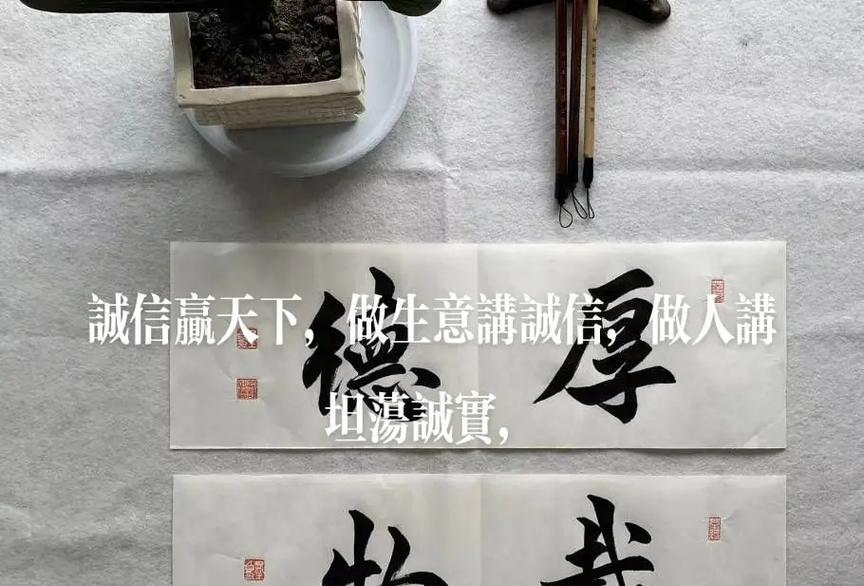 誠信贏天下，做生意講誠信，做人講
坦蕩誠實，
厚德
載物